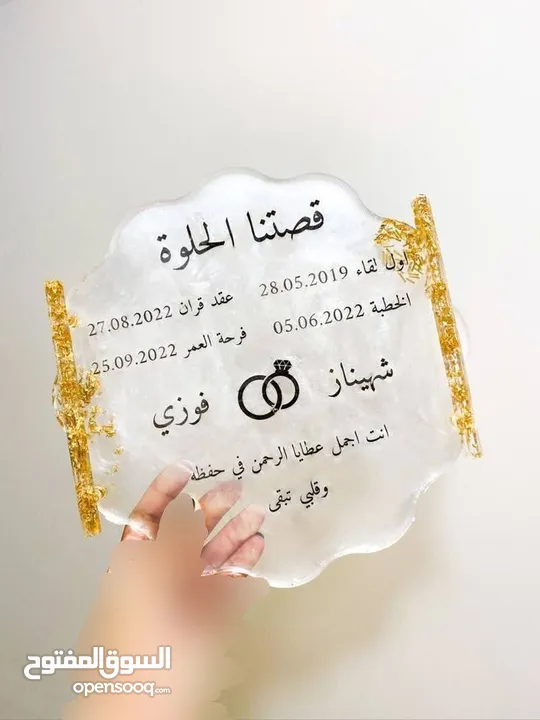 قصتنا الحلوة
اول لقاء 28.05.2019 عقد قران 27.08.2022
الخطبة 05.06.2022 فرحة العمر 25.09.2022
شهيناز فوزي
انت اجمل عطايا الرحمن في حفظه
وقلبي تبقى
السوق المفتوح
opensooq.com